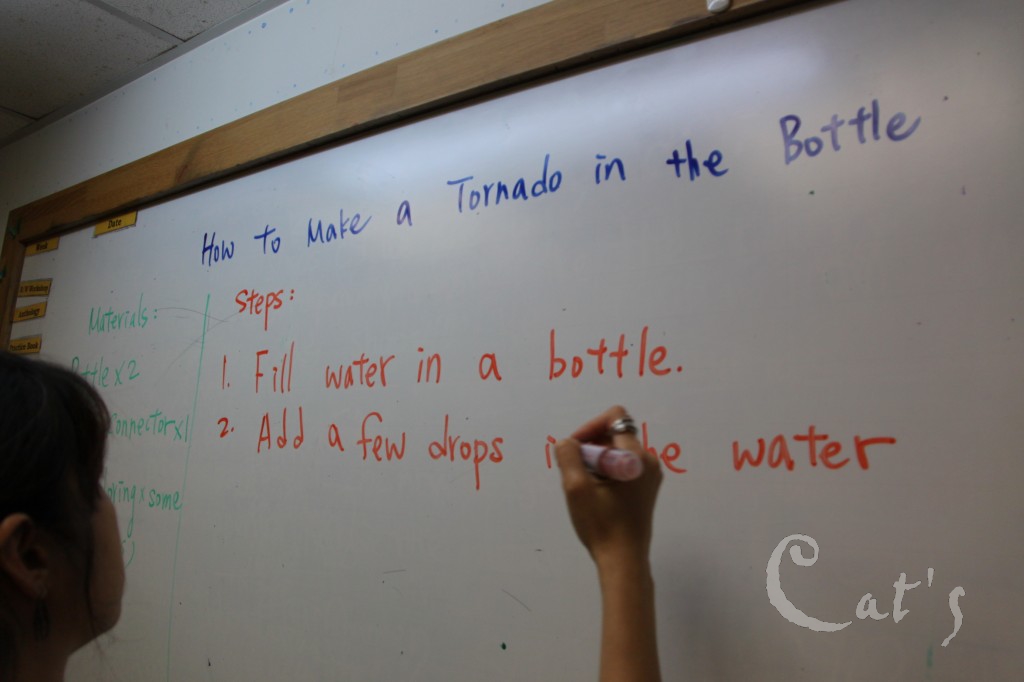 How to Make a Tornado in the Bottle
Date
Book
Materials:
Bottle x 2
Connector x 1
some
Steps:
1. Fill water in a bottle.
2. Add a few drops the water
Cat's